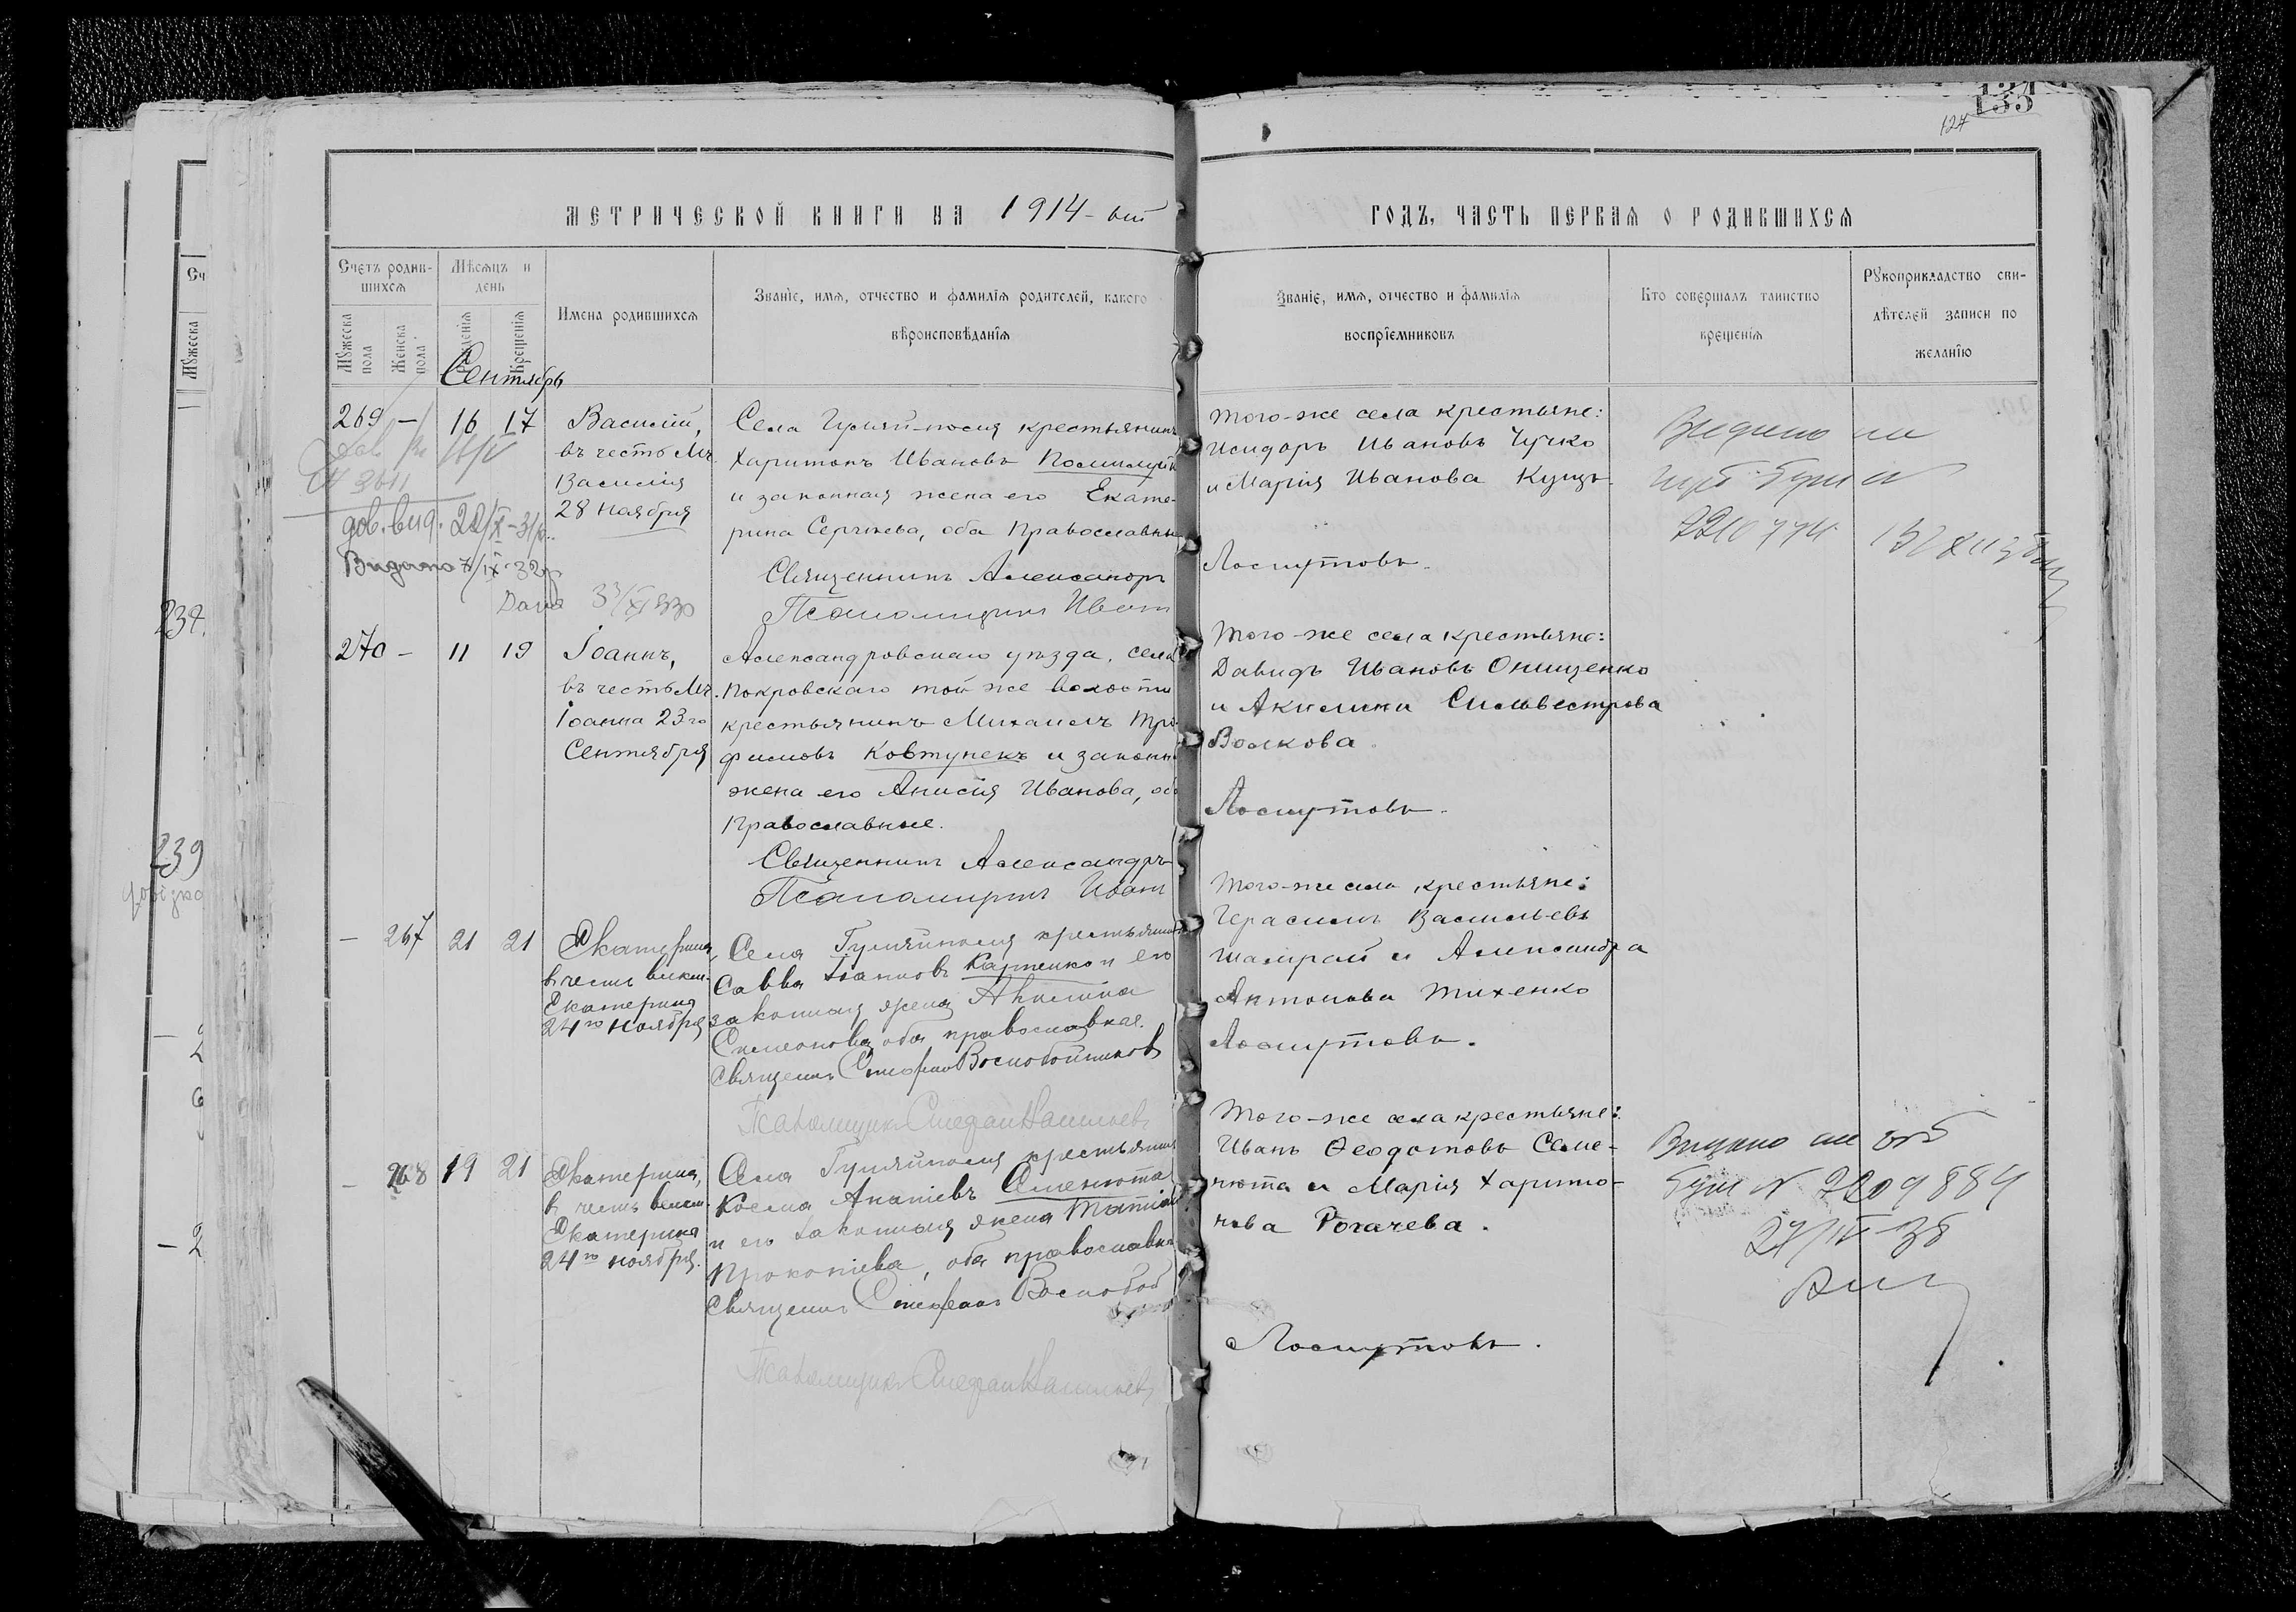 134
135
124
МЕТРИЧЕСКОЙ КНИГИ НА 1914-ый
ГОДЪ, ЧАСТЬ ПЕРВАЯ О РОДИВШИХСЯ
Счетъ родив-
шихся
Мѣсяцъ и
день
Имена родившихся
Званіе, имя, отчество и фамилія родителей, какого
вѣроисповѣданія
Мужеска
пола
Женска
пола
Рожденія
Крещенія
Званіе, имя, отчество и фамилія
воспріемниковъ
Кто совершалъ таинство
крещенія
Рукоприкладство сви-
дѣтелей записи по
желанію
Сентябрь
269 – 16 17
Василій,
въ честь Мч.
Василія
28 Ноября
Села Гуляй-поля крестьянинъ
Харитонъ Ивановъ
и законная жена его Екате-
рина Сергѣева, оба Православные
Священникъ Александръ
Псаломщикъ Иван
Того-же села крестьяне:
Исидоръ Ивановъ Чучко
и Марія Ивановa Куцъ
Лоскутовъ.
Видано на
2210774
дов. вид. 22/X-31р.
Видано 7/IX-32р
270 – 11 19
Іоаннъ,
въ честь Мч.
Іоанна 23го
Сентября
Александровскаго уѣзда, села
Покровскаго той же волости
крестьянинъ Михаилъ Тро-
фимовъ Ковтунекъ и законн
жена его Анисія Иванова, об
Православные.
Священникъ Александръ
Псаломщикъ Иван
Того-же села крестьяне:
Давидъ Ивановъ Онищенко
и Акилина Сильвестрова
Волкова.
Лоскутовъ.
– 267 21 21
Екатерина,
в честь вмкм.
Екатерины
24го Ноября
Села Гуляйполя крестьянинъ
Савва Іоанновъ Карпенко и его
законная жена Акилина
Симеонова, оба православная.
Священ. Стефан Воскобойников
Псаломщик Стефан Васильев
Того-же села крестьяне:
Герасимъ Васильевъ
Шамрай и Александра
Антонова Тихенко
Лоскутовъ.
– 268 19 21
Екатерина,
в честь вмкм.
Екатерины
24го ноября.
Села Гуляйполя крестьянин
Косма Ананіевъ Семенюта
и его законная жена Татіан
Прокопіева, оба православн
Священ. Стефан Воскобой
Псаломщик Стефан Васильев
Того-же села крестьяне:
Иванъ Ѳеодотовъ Семе-
нюта и Марія Харито-
нова Рогачева.
Лоскутовъ.
Видано на
N 2209884
27/IV-38
237.
239